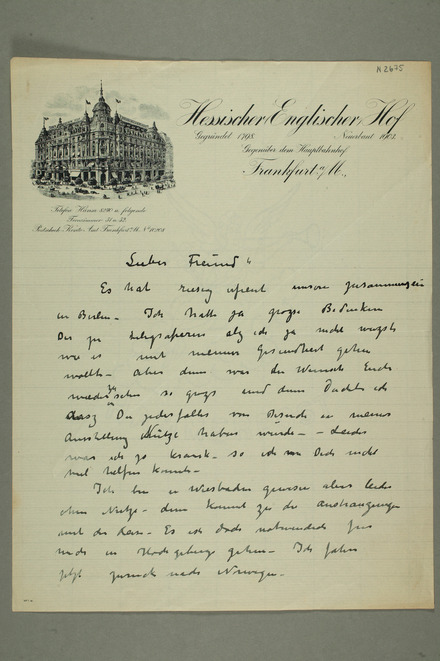 N 2675
Hessischer/Englischer Hof
Gegründet 1798. Neuerbaut 1904.
Gegenüber dem Hauptbahnhof
Frankfurt a/M.,
Telefon: Hansa u. folgende
Postscheck-Konto: Amt Frankfurt a/M. No
Lieber Freund"
Es hat riesig gefreut unsere zusammensein
in Berlin – Ich hatte ja grosze Bedenken
Dir zu telegraferen als ich ja nicht wuszte
wie es mit meiner Gesundheit gehen
wollte – aber dann war der Wunsch Euch
so grosz und dann Dachte ich
dasz Du jedenfalls von Besuch in meiner
Ausstellung Nütze haben würde – – Leider
war ich so krank – so ich Dich nicht
viel helfen konnte –
Ich bin in Wiesbaden gewesen aber leider
ohne Nutze – dann kommt zu die anstrangungen
mit der Reise – Es ist doch notwendich für
mich in Hochgebirge gehen – Ich fahre
jetzt zurück nach Norwegen –